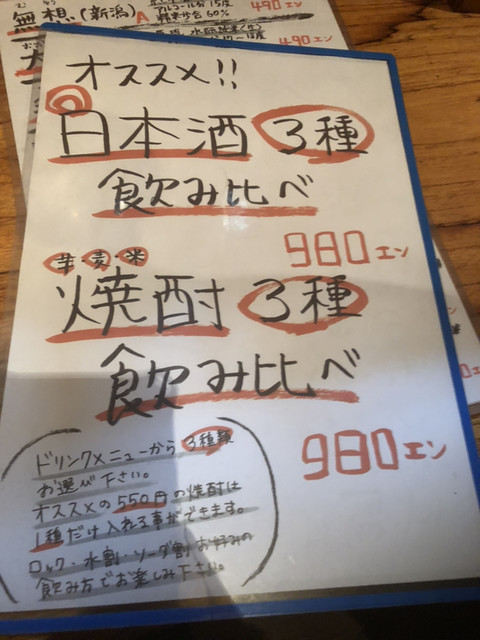 無想(新潟)
アルコール分15度
精米歩合60%
490エン
490エン
オススメ!!
日本酒 3種
飲み比べ
980エン
芋・麦・米
焼酎 3種
飲み比べ
980エン
ドリンクメニューから 3種類
お選び下さい。
オススメの550円の焼酎は
1種だけ入れる事ができます。
ロック・水割・ソーダ割 お好みの
飲み方でお楽しみ下さい。